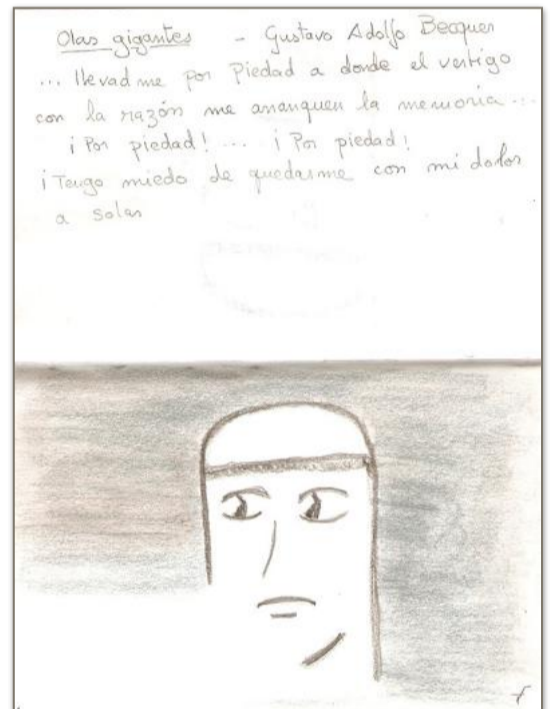 Olas gigantes - Gustavo Adolfo Becquer
... llevadme por piedad a donde el vertigo
con la razón me arranquen la memoria...
¡Por piedad! ... ¡Por piedad!
¡Tengo miedo de quedarme con mi dolor
a solas